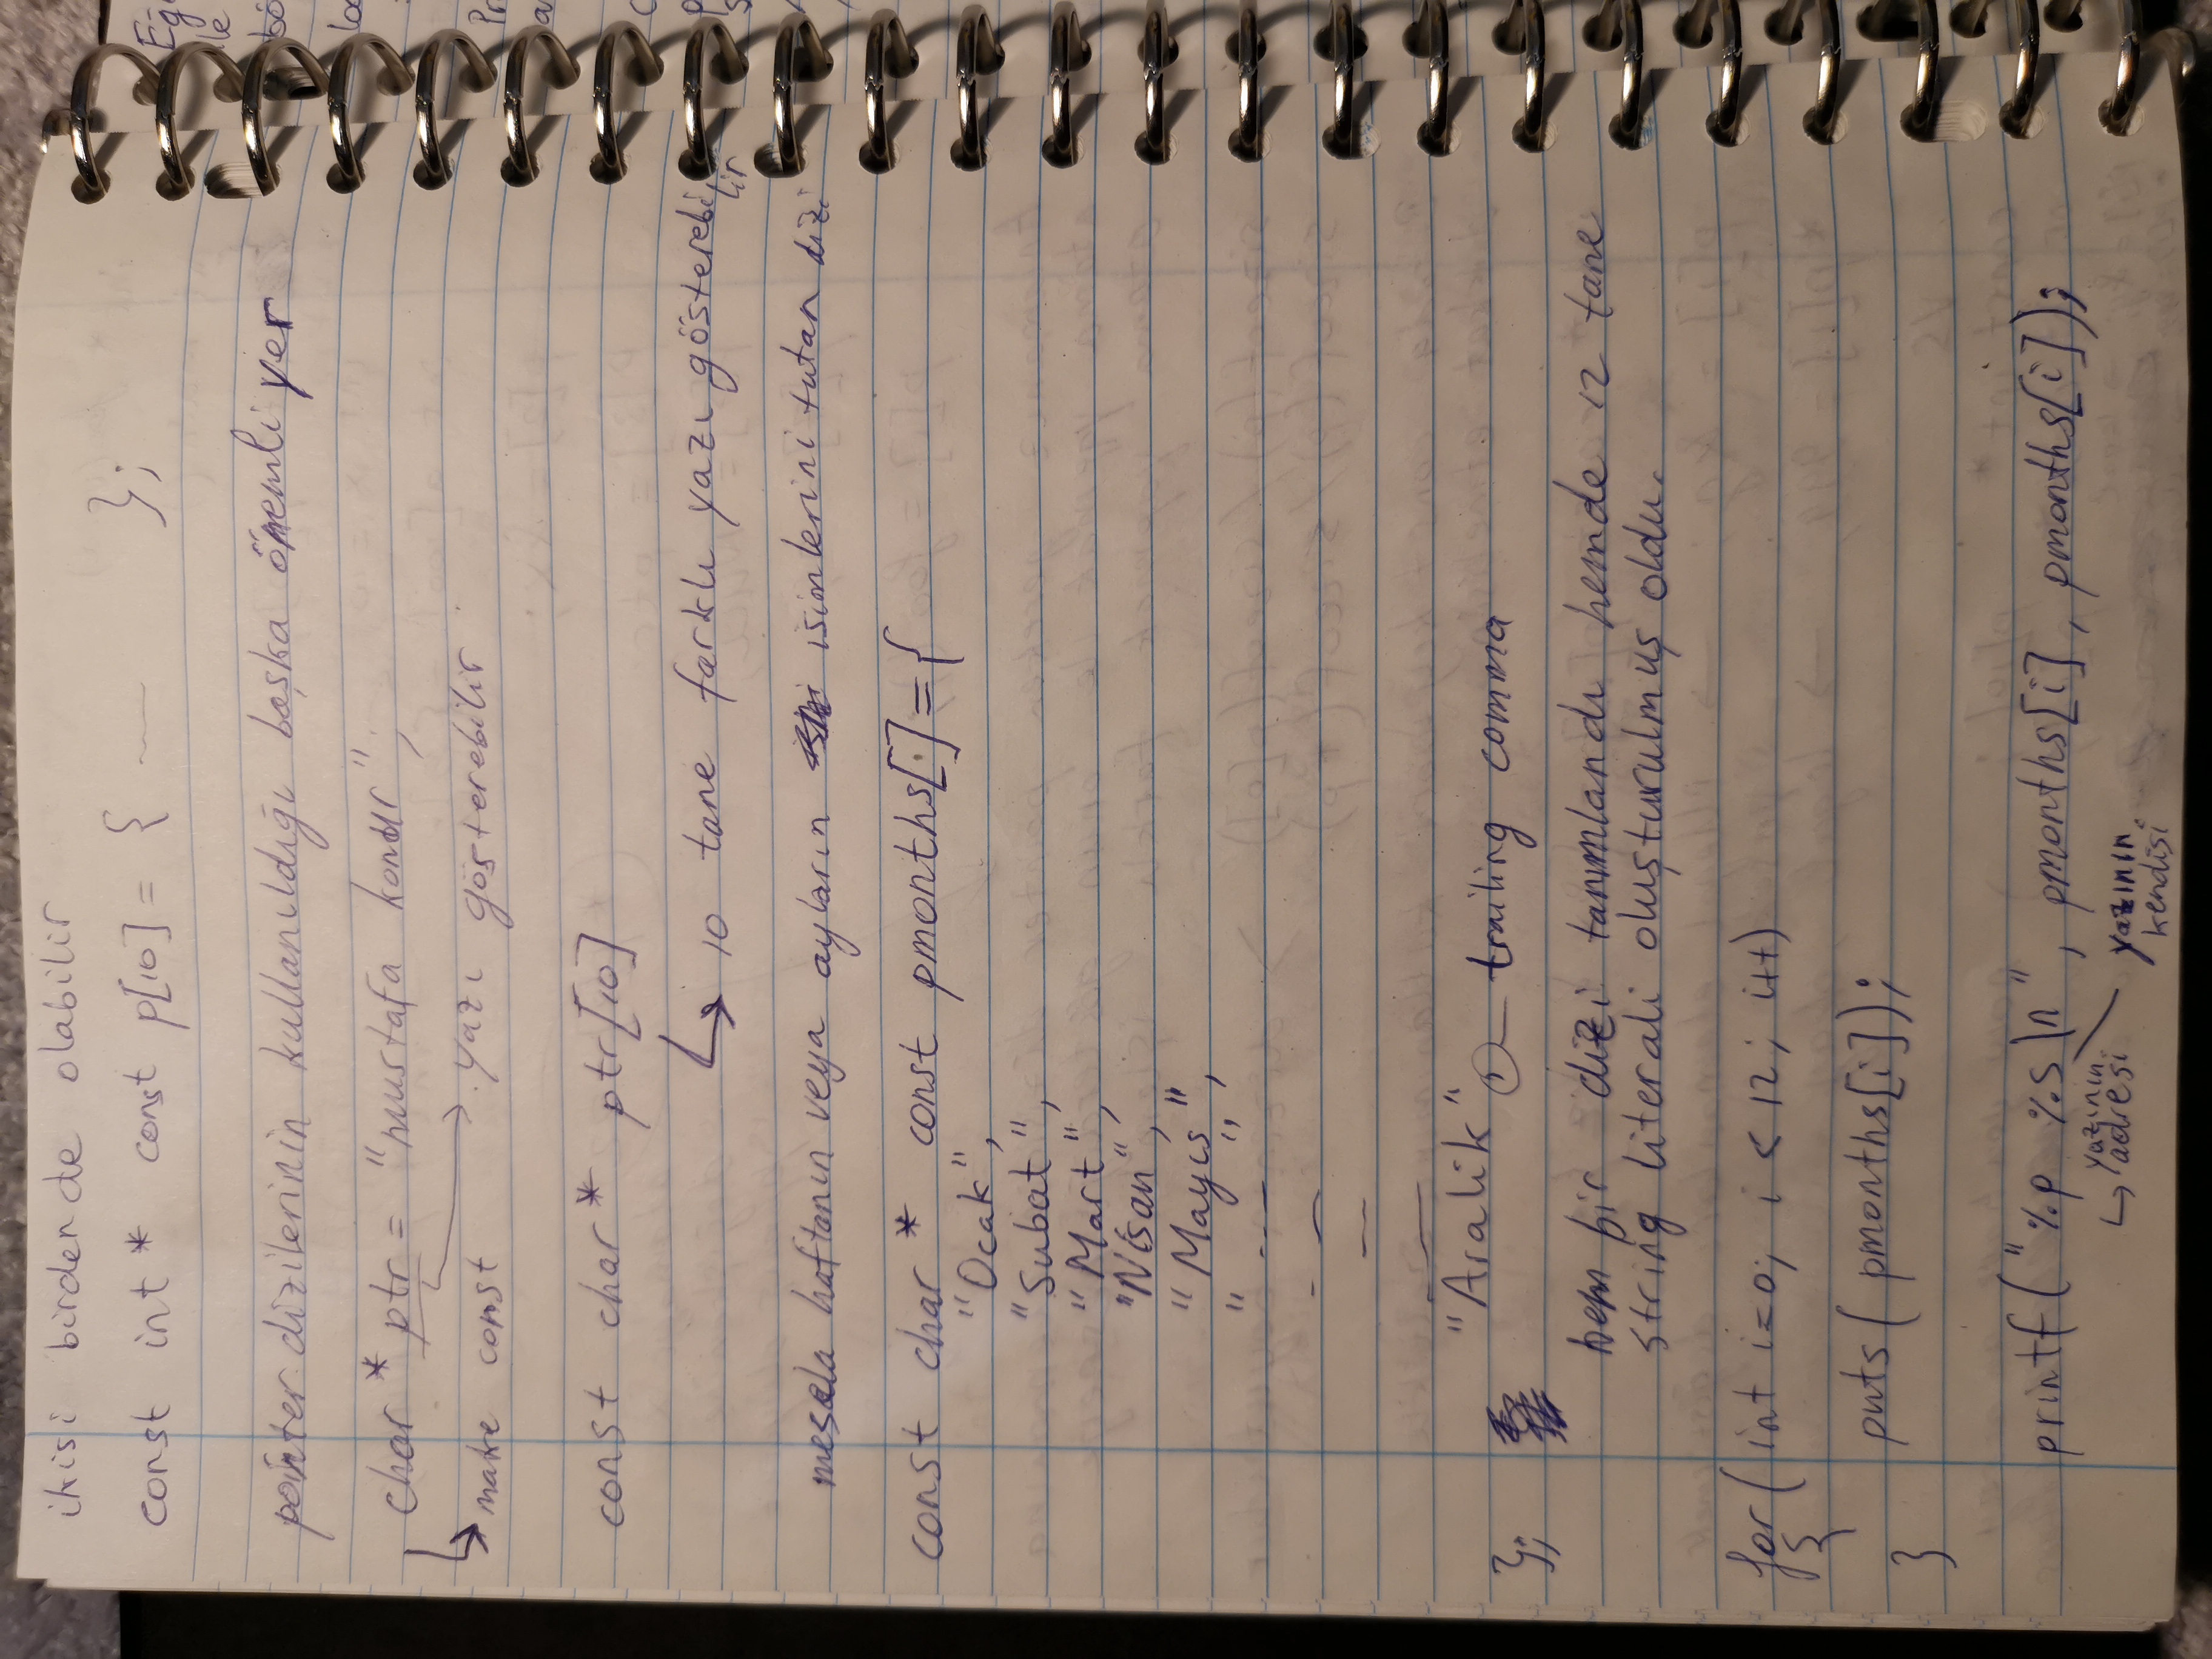 ikisi birden de olabilir
const int * const p[10] = { — };
pointer dizilerinin kullanıldığı başka önemli yer
char * ptr = "mustafa kondur";
make const
yazı gösterebilir
const char * ptr[10]
10 tane farklı yazı gösterebilir
mesela haftanın veya ayların isimlerini tutan dizi
const char * const pmonths[] = {
"Ocak",
"Subat",
"Mart",
"Nisan",
"Mayıs",
" --- "
"Aralik", trailing comma
};
hem bir dizi tanımlandı hemde 12 tane
string literali oluşturulmuş oldu.
for( int i=0; i < 12; i++)
{
puts( pmonths[i]);
}
printf( "%p %s \n", pmonths[i], pmonths[i]);
yazının
adresi
yazının
kendisi